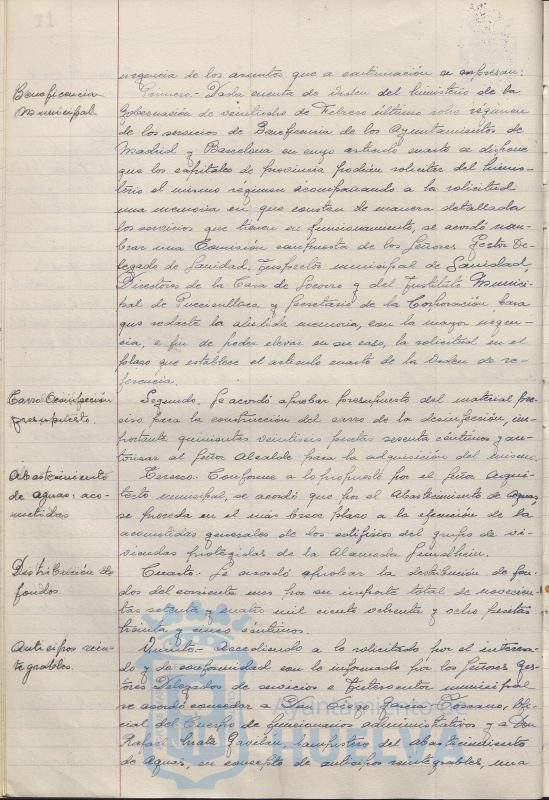 urgencia de los asuntos que a continuación se expresan:
Beneficencia
Municipal.
Primero.- Dada cuenta de Orden del Ministerio de la
Gobernación de veintiocho de Febrero último sobre régimen
de los servicios de Beneficencia de los Ayuntamientos de
Madrid y Barcelona en cuyo artículo cuarto se dispone
que las capitales de provincia podrán solicitar del Minis-
terio el mismo régimen acompañando a la solicitud
una memoria en que consten de manera detallada
los servicios que tienen en funcionamiento, se acordó nom-
brar una Comisión compuesta de los Señores Gestor De-
legado de Sanidad, Inspector municipal de Sanidad,
Directores de la Casa de Socorro y del Instituto Munici-
pal de Puericultura y Secretario de la Corporación, para
que redacte la aludida memoria, con la mayor urgen-
cia, a fin de poder elevar en su caso, la solicitud en el
plazo que establece el artículo cuarto de la Orden de re-
ferencia.
Carro Desinfección
presupuesto.
Segundo. Se acordó aprobar presupuesto del material pre-
ciso para la construcción del carro de la desinfección, im-
portante quinientas veintiseis pesetas sesenta céntimos y au-
torizar al Señor Alcalde para la adquisición del mismo.
Abastecimiento
de aguas: aco-
metidas
Tercero. Conforme a lo propuesto por el Señor Arqui-
tecto municipal, se acordó que por el Abastecimiento de Aguas,
se proceda en el más breve plazo a la ejecución de las
acometidas generales de los edificios del grupo de vi-
viendas protegidas de la Alameda Sundheim.
Distribución de
fondos.
Cuarto. Se acordó aprobar la distribución de fon-
dos del corriente mes por su importe total de novecien-
tas setenta y cuatro mil ciento ochenta y ocho pesetas
treinta y cinco céntimos.
Anticipos rein-
tegrables.
Quinto.- Accediendo a lo solicitado por el interesa-
do y de conformidad con lo informado por los Señores Ges-
tores Delegados de servicios e Interventor municipal
se acordó conceder a Don Diego Romero Lozano, Ofi-
cial del Cuerpo de funcionarios administrativos y a Don
Rafael Gavilán, lampistero del abastecimiento
de Aguas, en concepto de anticipos reintegrables, una
Ayuntamiento de
HUELVA